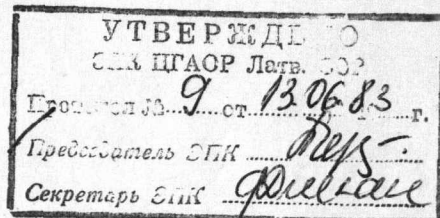 УТВЕРЖДЕНО
ЭПК ЦГАОР Латв. ССР
Протокол № 9 от 13.06.83 г.
Председатель ЭПК
Секретарь ЭПК